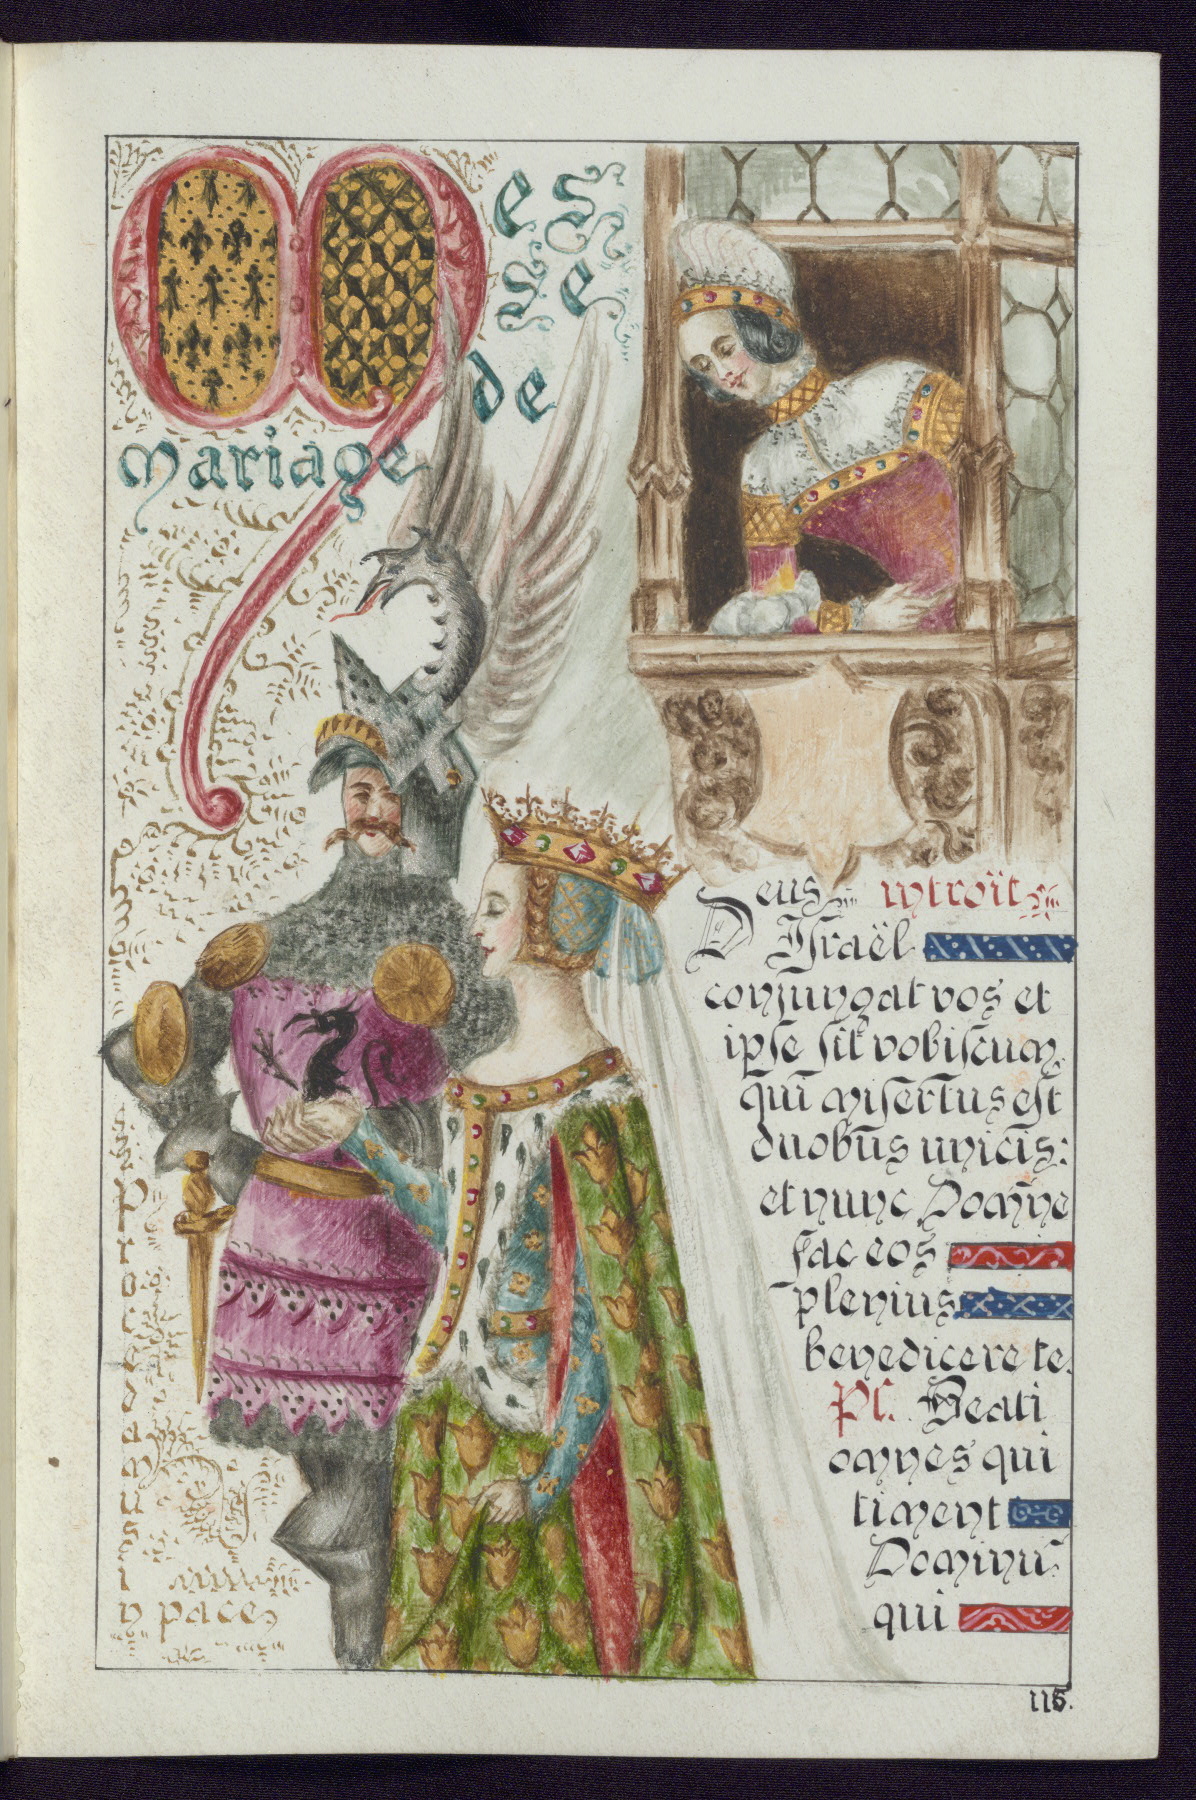 Mes
se
de
mariage
Deus Introït
Israël
conjungat vos et
ipse sit vobiscum,
qui misertus est
duobus unicis:
et nunc Domine
fac eos
plenius
benedicere te.
Ps. Beati
omnes qui
timent
Dominū
qui
P
r
o
c
e
d
a
m
u
s
i
n pace
115.